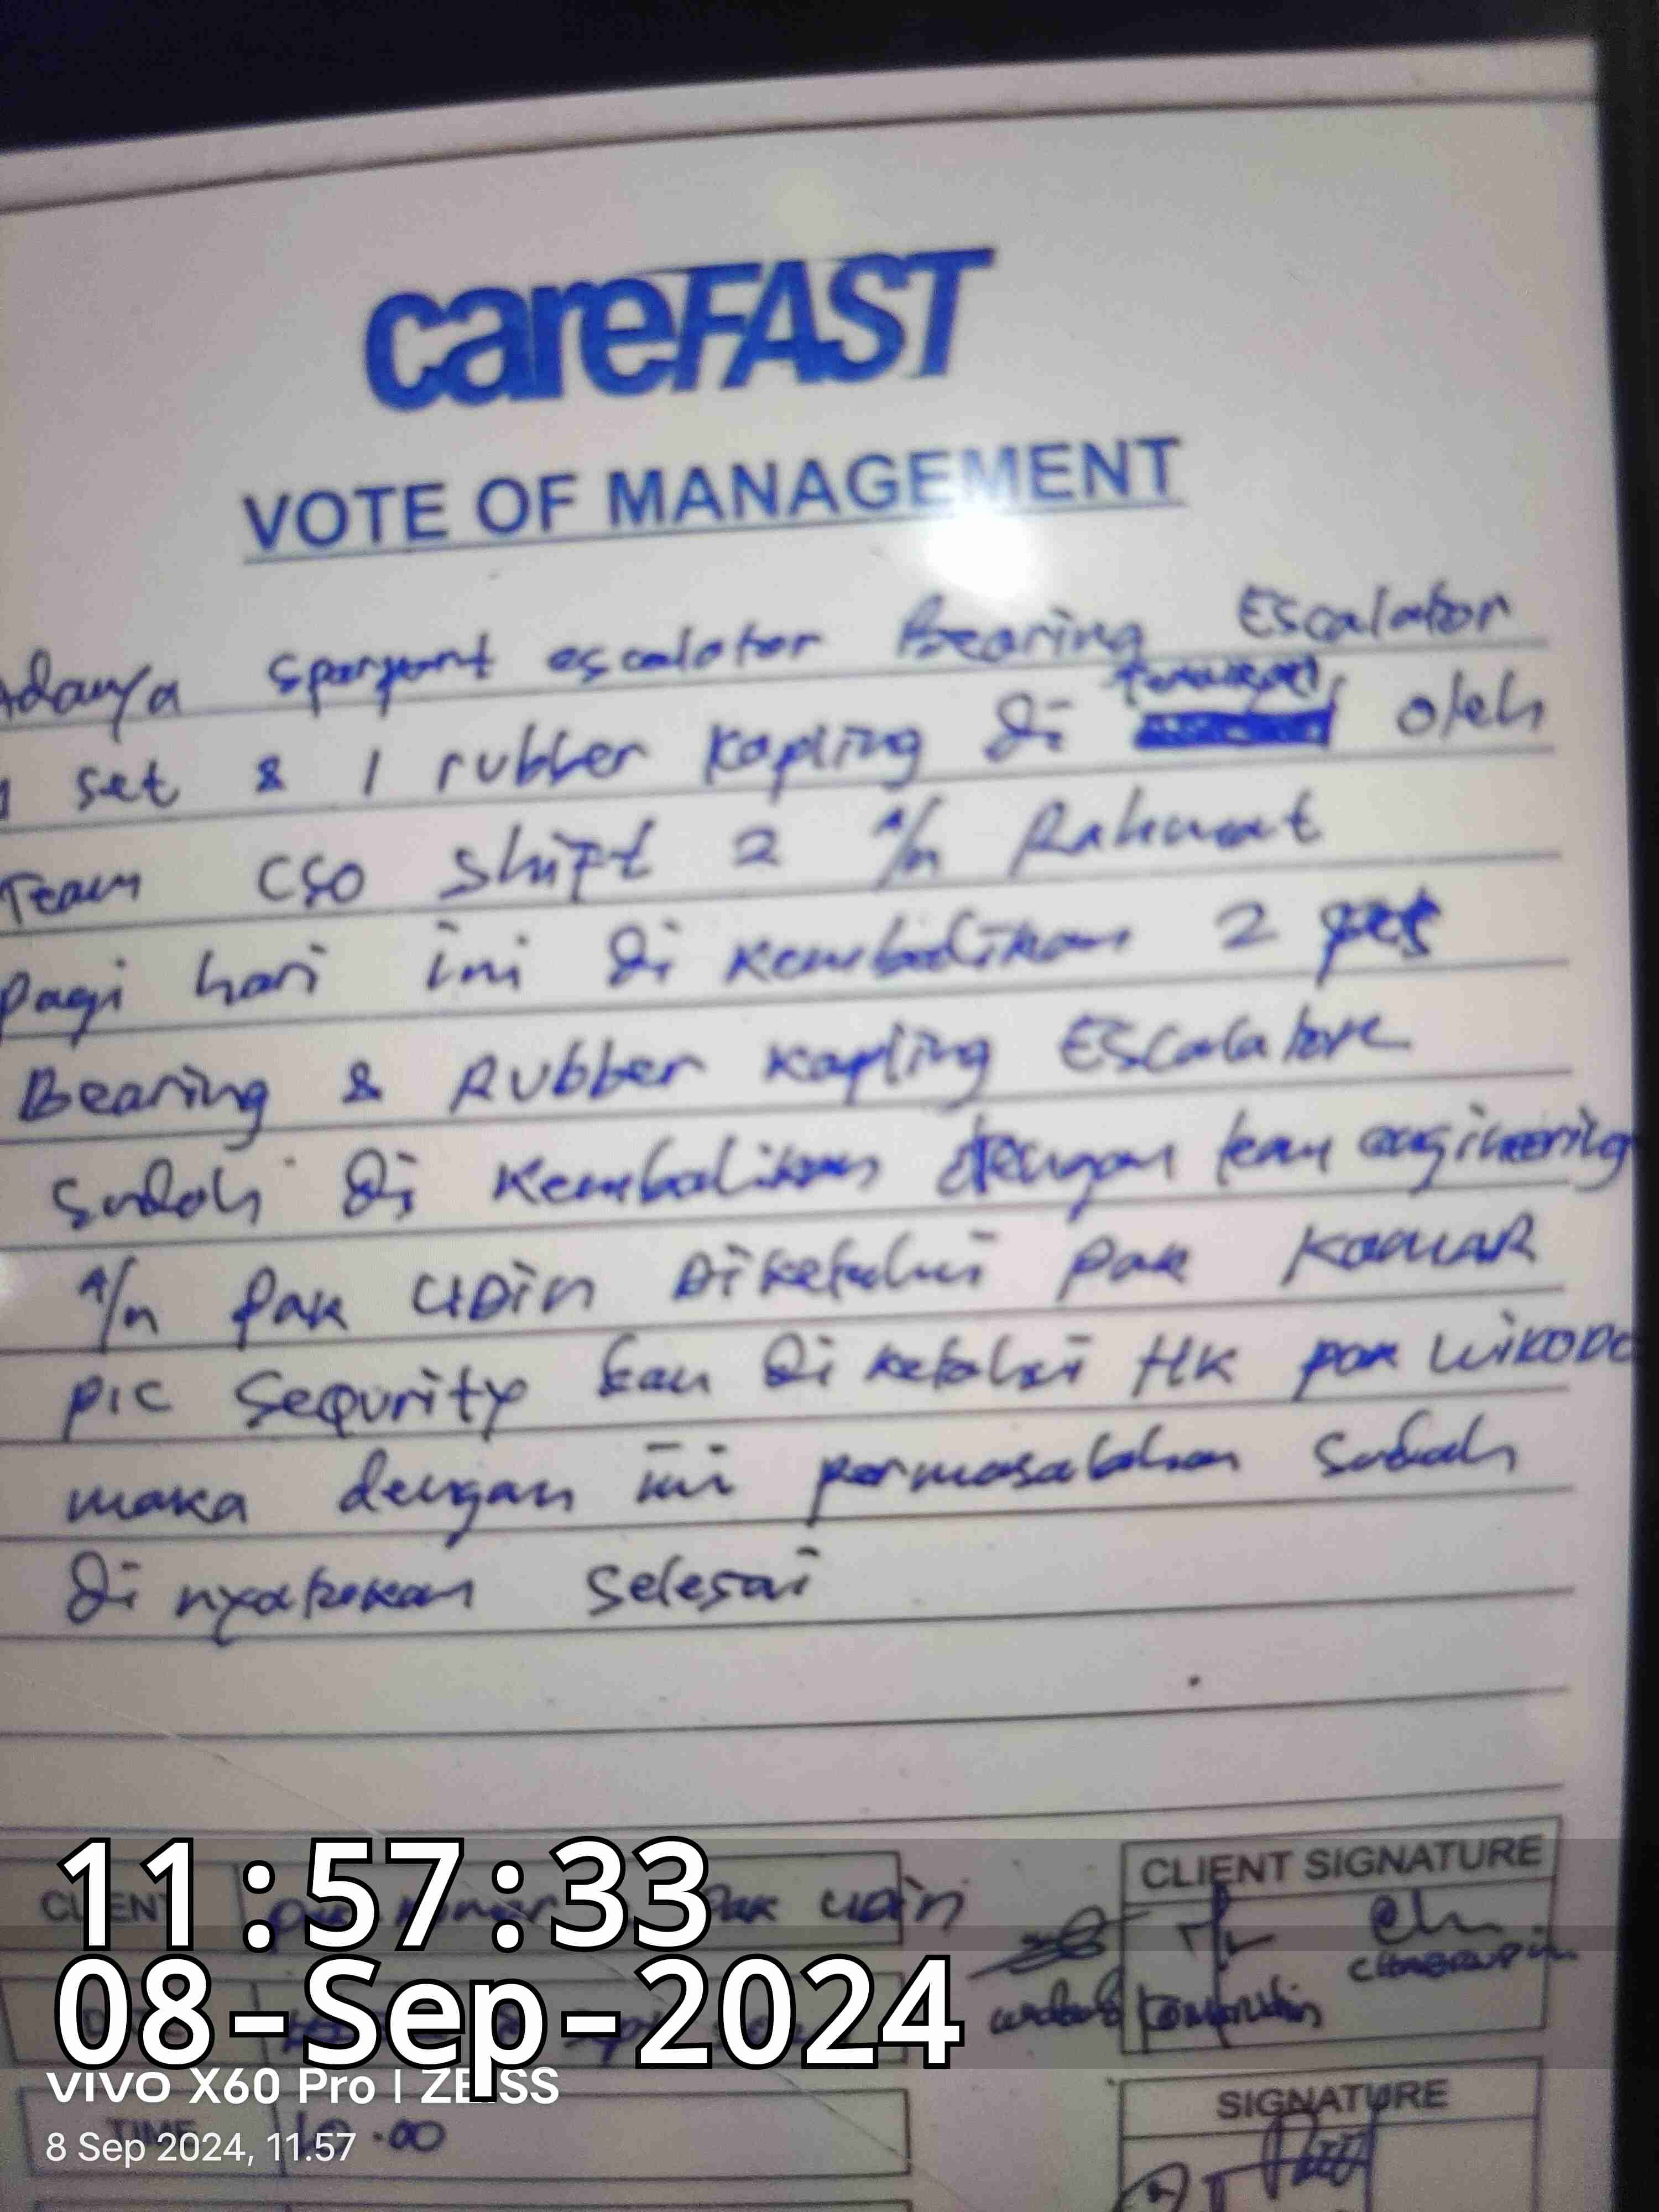 careFAST
VOTE OF MANAGEMENT
Adanya Sparpart escalator Bearing Escalator
1 set & 1 rubber Kopling di oleh
Team CSO Shift 2 A/n Rahmat
Pagi hari ini di kembalikan 2 pcs
Bearing & Rubber Kopling Escalator
Sudah di kembalikan dengan team enginering
A/n Pak UDin Diketahui Pak KomaR
PIC Sequrity dan di ketahui HK pak WiKODO
maka dengan ini permasalahan Sudah
di nyatakan Selesai
CLIENT Pak Komar Pak UDin
CLIENT SIGNATURE
SIGNATURE
TIME .00
11:57:33
08-Sep-2024
vivo X60 Pro | ZEISS
8 Sep 2024, 11.57